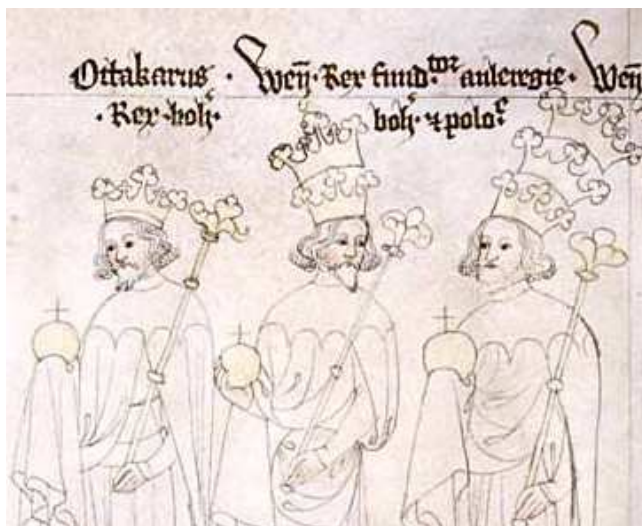 Ottakarus · Weñ · Rex fund.tor aulergie · Weñ
· Rex · boh.ͨ boh.ͨ ⁊ polo.ͤ